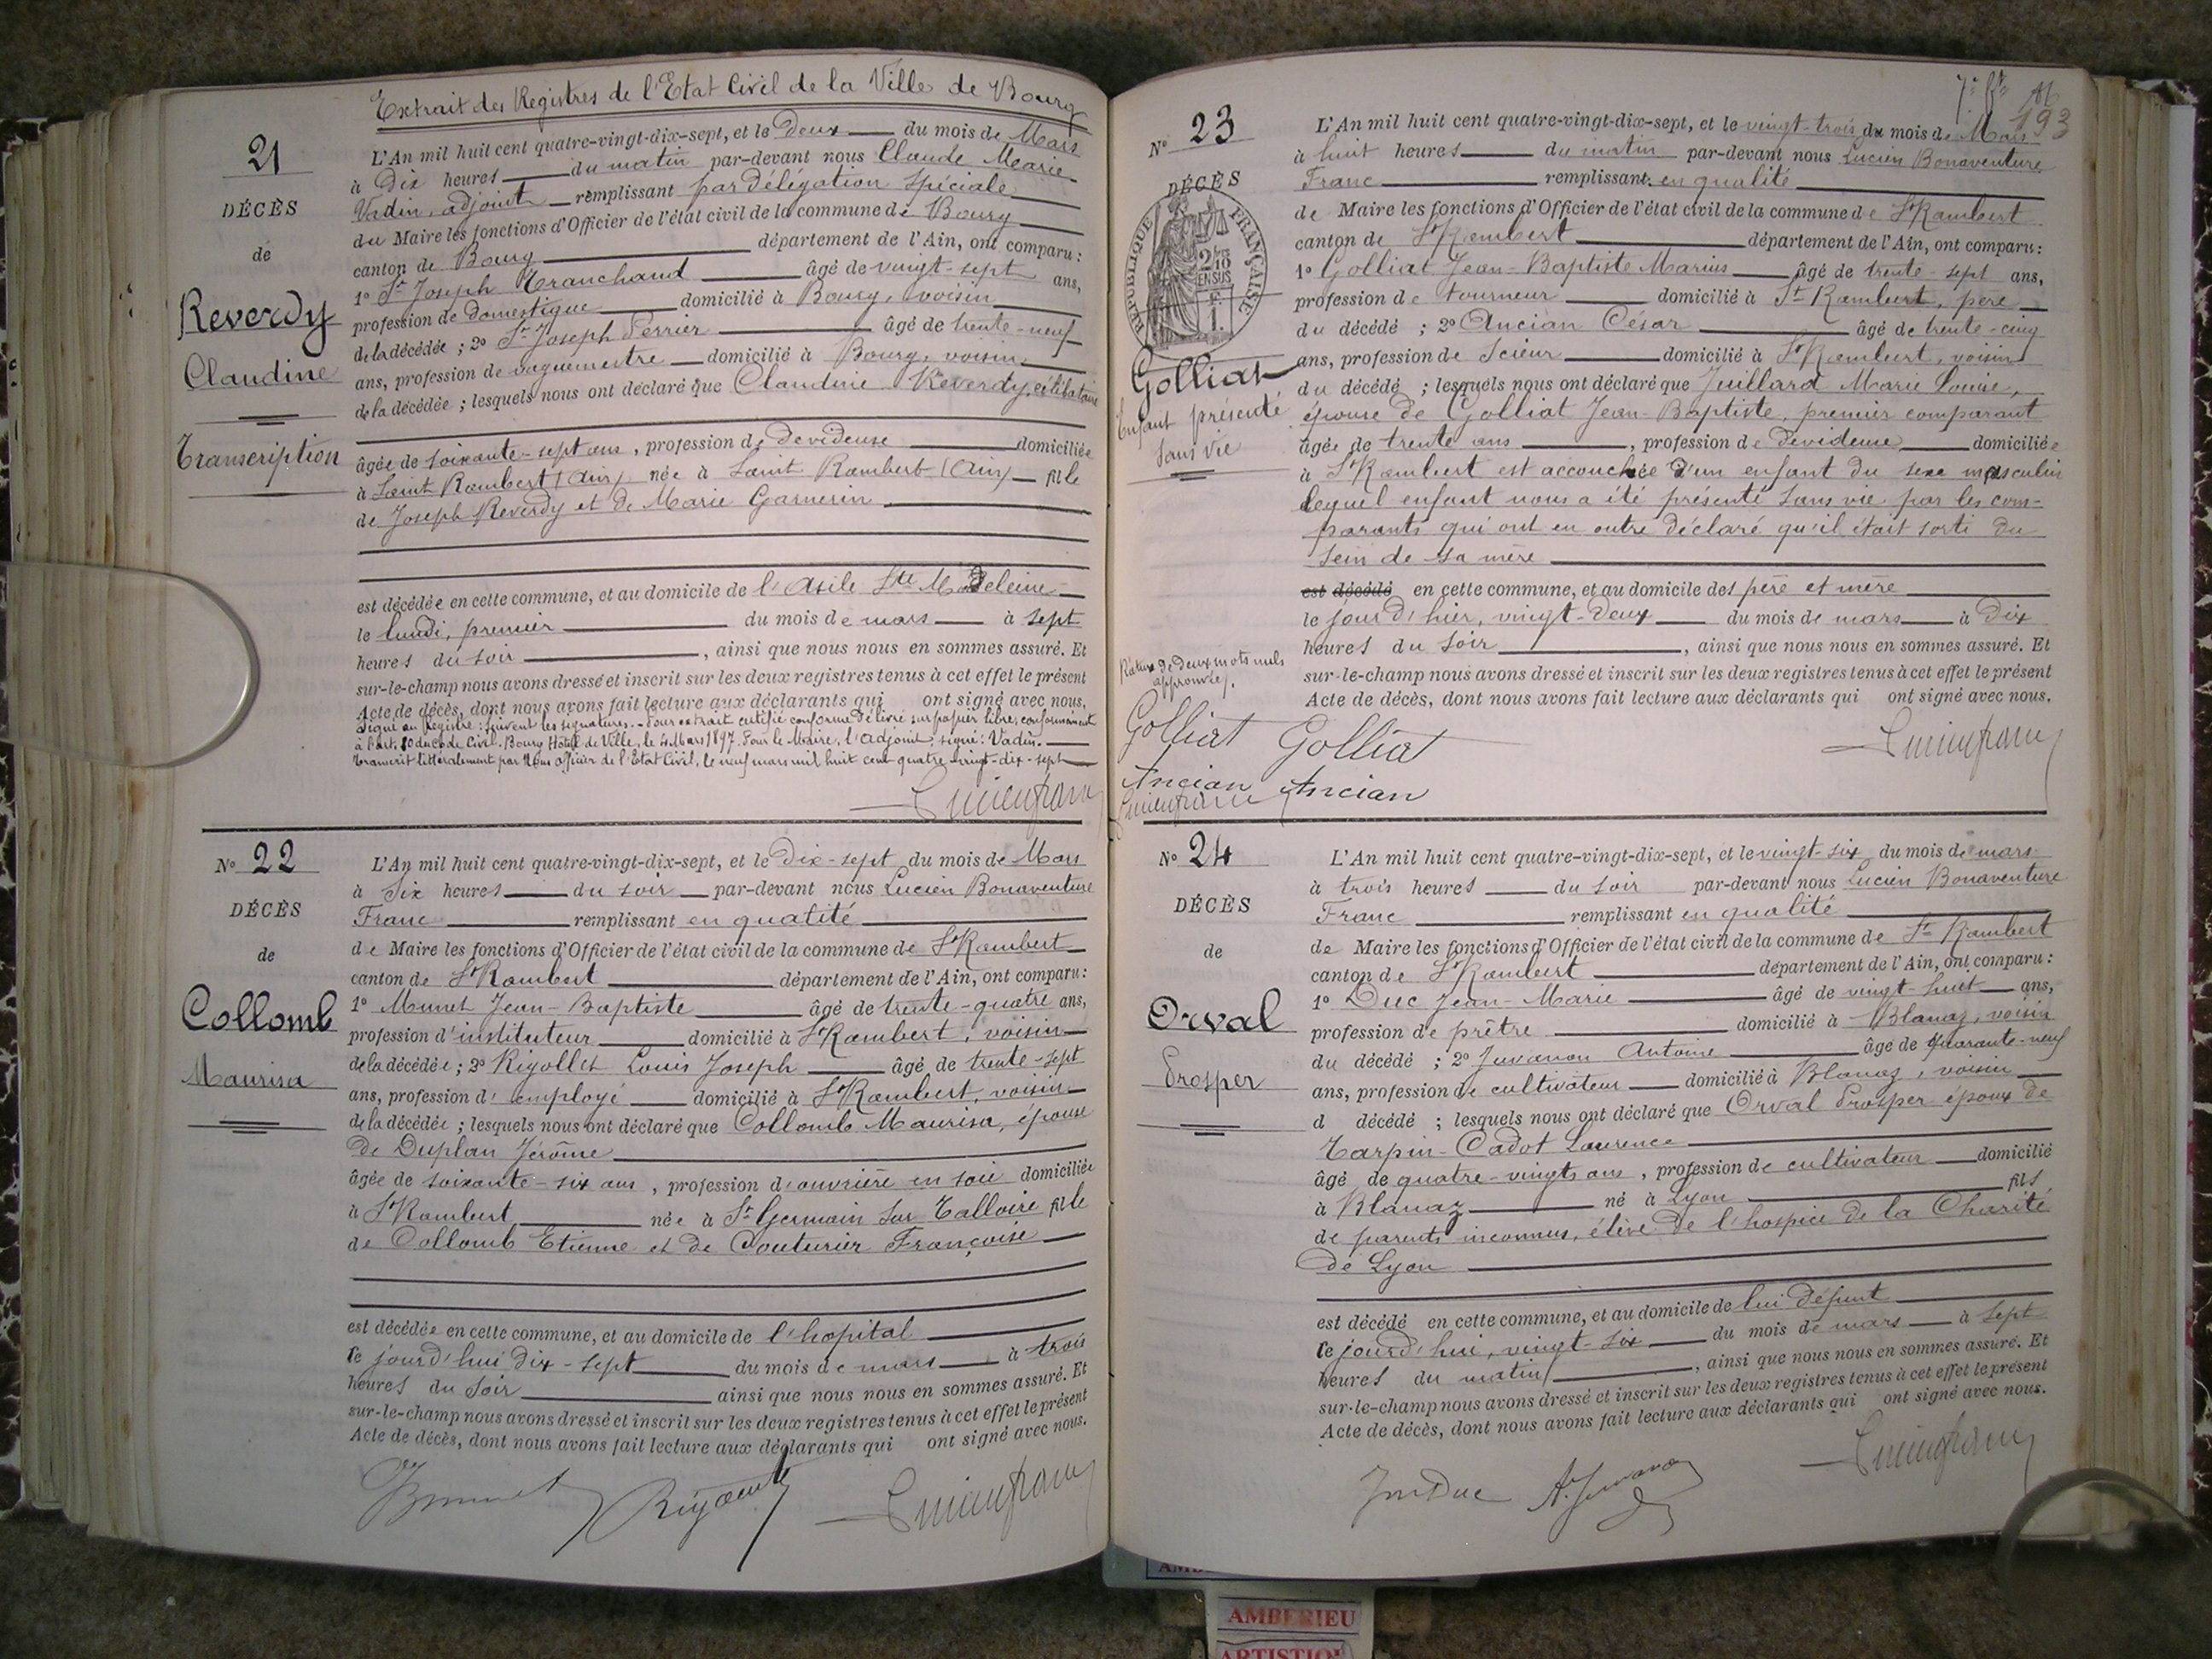 Extrait des Registres de l'Etat Civil de la Ville de Bourg
21
DÉCÈS
de
Reverdy
Claudine
Transcription
L'An mil huit cent quatre-vingt-dix-sept, et le Deux du mois de Mars
à Dix heures du matin par-devant nous Claude Marie
Vadin, adjoint remplissant par délégation spéciale
du Maire les fonctions d'Officier de l'état civil de la commune de Bourg
canton de Bourg département de l'Ain, ont comparu :
1º Sr Joseph Tranchand âgé de vingt-sept ans,
profession de domestique domicilié à Bourg, voisin
de la décédée ; 2º Sr Joseph Perrier âgé de trente-neuf
ans, profession de vaguemestre domicilié à Bourg, voisin
de la décédée ; lesquels nous ont déclaré que Claudine Reverdy, célibataire
âgée de soixante-sept ans, profession de dévideuse domiciliée
à Saint Rambert (Ain) née à Saint Rambert (Ain) fille
de Joseph Reverdy et de Marie Garnerin
est décédée en cette commune, et au domicile de l'Asile Ste Madeleine
le lundi, premier du mois de mars à sept
heures du soir, ainsi que nous nous en sommes assuré. Et
sur-le-champ nous avons dressé et inscrit sur les deux registres tenus à cet effet le présent
Acte de décès, dont nous avons fait lecture aux déclarants qui ont signé avec nous.
Signé au Registre : suivent les signatures. - Pour extrait certifié conforme délivré sur papier libre, conformément
à l'art. 80 du code Civil. Bourg Hôtel de Ville, le 4 Mars 1897. Pour le Maire, l'Adjoint, signé : Vadin.
Transcrit littéralement par Nous officier de l'Etat Civil, le neuf mars mil huit cent quatre-vingt-dix-sept
Lucien franc
Nº 22
DÉCÈS
de
Collomb
Maurisa
L'An mil huit cent quatre-vingt-dix-sept, et le Dix-sept du mois de Mars
à Six heures du soir par-devant nous Lucien Bonaventure
Franc remplissant en qualité
de Maire les fonctions d'Officier de l'état civil de la commune de St Rambert
canton de St Rambert département de l'Ain, ont comparu :
1º Munet Jean-Baptiste âgé de trente-quatre ans,
profession d'instituteur domicilié à St Rambert, voisin
de la décédée ; 2º Rigollet Louis Joseph âgé de trente-sept
ans, profession d'employé domicilié à St Rambert, voisin
de la décédée ; lesquels nous ont déclaré que Collomb Maurisa, épouse
de Duplan Jérôme
âgée de soixante-six ans, profession d'ouvrière en soie domiciliée
à St Rambert née à St Germain sur Talloire fille
de Collomb Etienne et de Couturier Françoise
est décédée en cette commune, et au domicile de l'hopital
le jourd'hui dix-sept du mois de mars à trois
heures du soir ainsi que nous nous en sommes assuré. Et
sur-le-champ nous avons dressé et inscrit sur les deux registres tenus à cet effet le présent
Acte de décès, dont nous avons fait lecture aux déclarants qui ont signé avec nous.
Lucien franc
193
Nº 23
DÉCÈS
RÉPUBLIQUE FRANÇAISE
2/10
EN SUS
Golliat
Enfant présenté
sans vie
L'An mil huit cent quatre-vingt-dix-sept, et le vingt-trois du mois de Mars
à huit heures du matin par-devant nous Lucien Bonaventure
Franc remplissant en qualité
de Maire les fonctions d'Officier de l'état civil de la commune de St Rambert
canton de St Rambert département de l'Ain, ont comparu :
1º Golliat Jean-Baptiste Marius âgé de trente-sept ans,
profession de tourneur domicilié à St Rambert, père
du décédé ; 2º Ancian César âgé de trente-cinq
ans, profession de Scieur domicilié à St Rambert, voisin
du décédé ; lesquels nous ont déclaré que Juillard Marie Louise,
épouse de Golliat Jean-Baptiste, premier comparant
âgée de trente ans, profession de dévideuse domiciliée
à St Rambert est accouchée d'un enfant du sexe masculin
lequel enfant nous a été présenté sans vie par les com-
parants qui ont en outre déclaré qu'il était sorti du
sein de sa mère
est décédé en cette commune, et au domicile des père et mère
le jour d'hier, vingt-deux du mois de mars à Dix
heures du soir, ainsi que nous nous en sommes assuré. Et
sur-le-champ nous avons dressé et inscrit sur les deux registres tenus à cet effet le présent
Acte de décès, dont nous avons fait lecture aux déclarants qui ont signé avec nous.
Rature de deux mots nuls
approuvée.
Golliat Golliat
Lucien franc
Ancian Ancian
Lucien franc
Nº 24
DÉCÈS
de
Orval
Prosper
L'An mil huit cent quatre-vingt-dix-sept, et le vingt-six du mois de mars
à trois heures du soir par-devant nous Lucien Bonaventure
Franc remplissant en qualité
de Maire les fonctions d'Officier de l'état civil de la commune de St Rambert
canton de St Rambert département de l'Ain, ont comparu :
1º Duc Jean-Marie âgé de vingt-huit ans,
profession de prêtre domicilié à Blanaz, voisin
du décédé ; 2º Juvanon Antoine âgé de quarante-neuf
ans, profession de cultivateur domicilié à Blanaz, voisin
d décédé ; lesquels nous ont déclaré que Orval Prosper époux de
Tarpin-Cadot Laurence
âgé de quatre-vingts ans, profession de cultivateur domicilié
à Blanaz né à Lyon fils
de parents inconnus, élève de l'hospice de la Charité
de Lyon
est décédé en cette commune, et au domicile de lui défunt
le jourd'hui, vingt-six du mois de mars à sept
heures du matin, ainsi que nous nous en sommes assuré. Et
sur-le-champ nous avons dressé et inscrit sur les deux registres tenus à cet effet le présent
Acte de décès, dont nous avons fait lecture aux déclarants qui ont signé avec nous.
Lucien franc
Jm Duc A. Juvanon
AMBERIEU